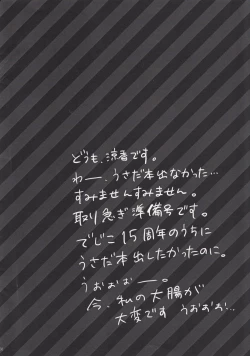 どうも、涼香です。
わー、うさだ本出なかった…
すみませんすみません。
取り急ぎ準備号です。
でじこ15周年のうちに
うさだ本出したかったのに。
うぉぉぉー。
今、私の大腸が
大変です うおぉぉ…